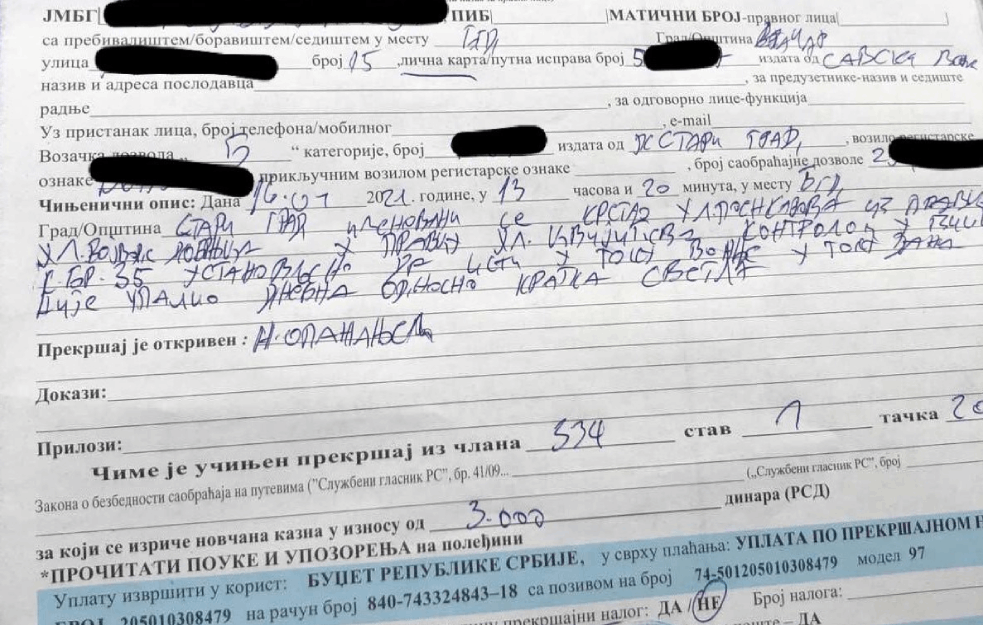 ЈМБГ ПИБ МАТИЧНИ БРОЈ-правног лица
са пребивалиштем/боравиштем/седиштем у месту БГД Град/Општина
улица број 15, лична карта/путна исправа број 5 издата од САВСКИ
назив и адреса послодавца , за предузетнике-назив и седиште
радње , за одговорно лице-функција
Уз пристанак лица, број телефона/мобилног , e-mail
Возачка дозвола „ Б “ категорије, број издата од СТАРИ ГРАД, возило регистарске
ознаке прикључним возилом регистарске ознаке , број саобраћајне дозволе 2
Чињенични опис: Дана 16.07 2021. године, у 13 часова и 20 минута, у месту БГД
Град/Општина СТАРИ ГРАД именовани се УЛ. ИЗ ПРАВЦА
УЛ. ВОЈВОДЕ ДОБРЊЦА У ПРАВЦУ УЛ. ЦВИЈИЋЕВА КОНТРОЛОМ У
К.БР. 35 УСТАНОВЉЕНО ДА ИСТИ У ТОКУ ВОЖЊЕ У ТОКУ ДАНА
НИЈЕ УПАЛИО ДНЕВНА ОДНОСНО КРАТКА СВЕТЛА
Прекршај је откривен : Н. ОПАЖАЊЕМ
Докази:
Прилози:
Чиме је учињен прекршај из члана 334 став 1 тачка 20
Закона о безбедности саобраћаја на путевима ("Службени гласник РС", бр. 41/09... („Службени гласник РС", број
за који се изриче новчана казна у износу од 3.000 динара (РСД)
*ПРОЧИТАТИ ПОУКЕ И УПОЗОРЕЊА на полеђини
Уплату извршити у корист: БУЏЕТ РЕПУБЛИКЕ СРБИЈЕ, у сврху плаћања: УПЛАТА ПО ПРЕКРШАЈНОМ Н
БРОЈ 205010308479 на рачун број 840-743324843–18 са позивом на број 74-501205010308479 модел 97
прекршајни налог: ДА / НЕ Број налога:
– ДА